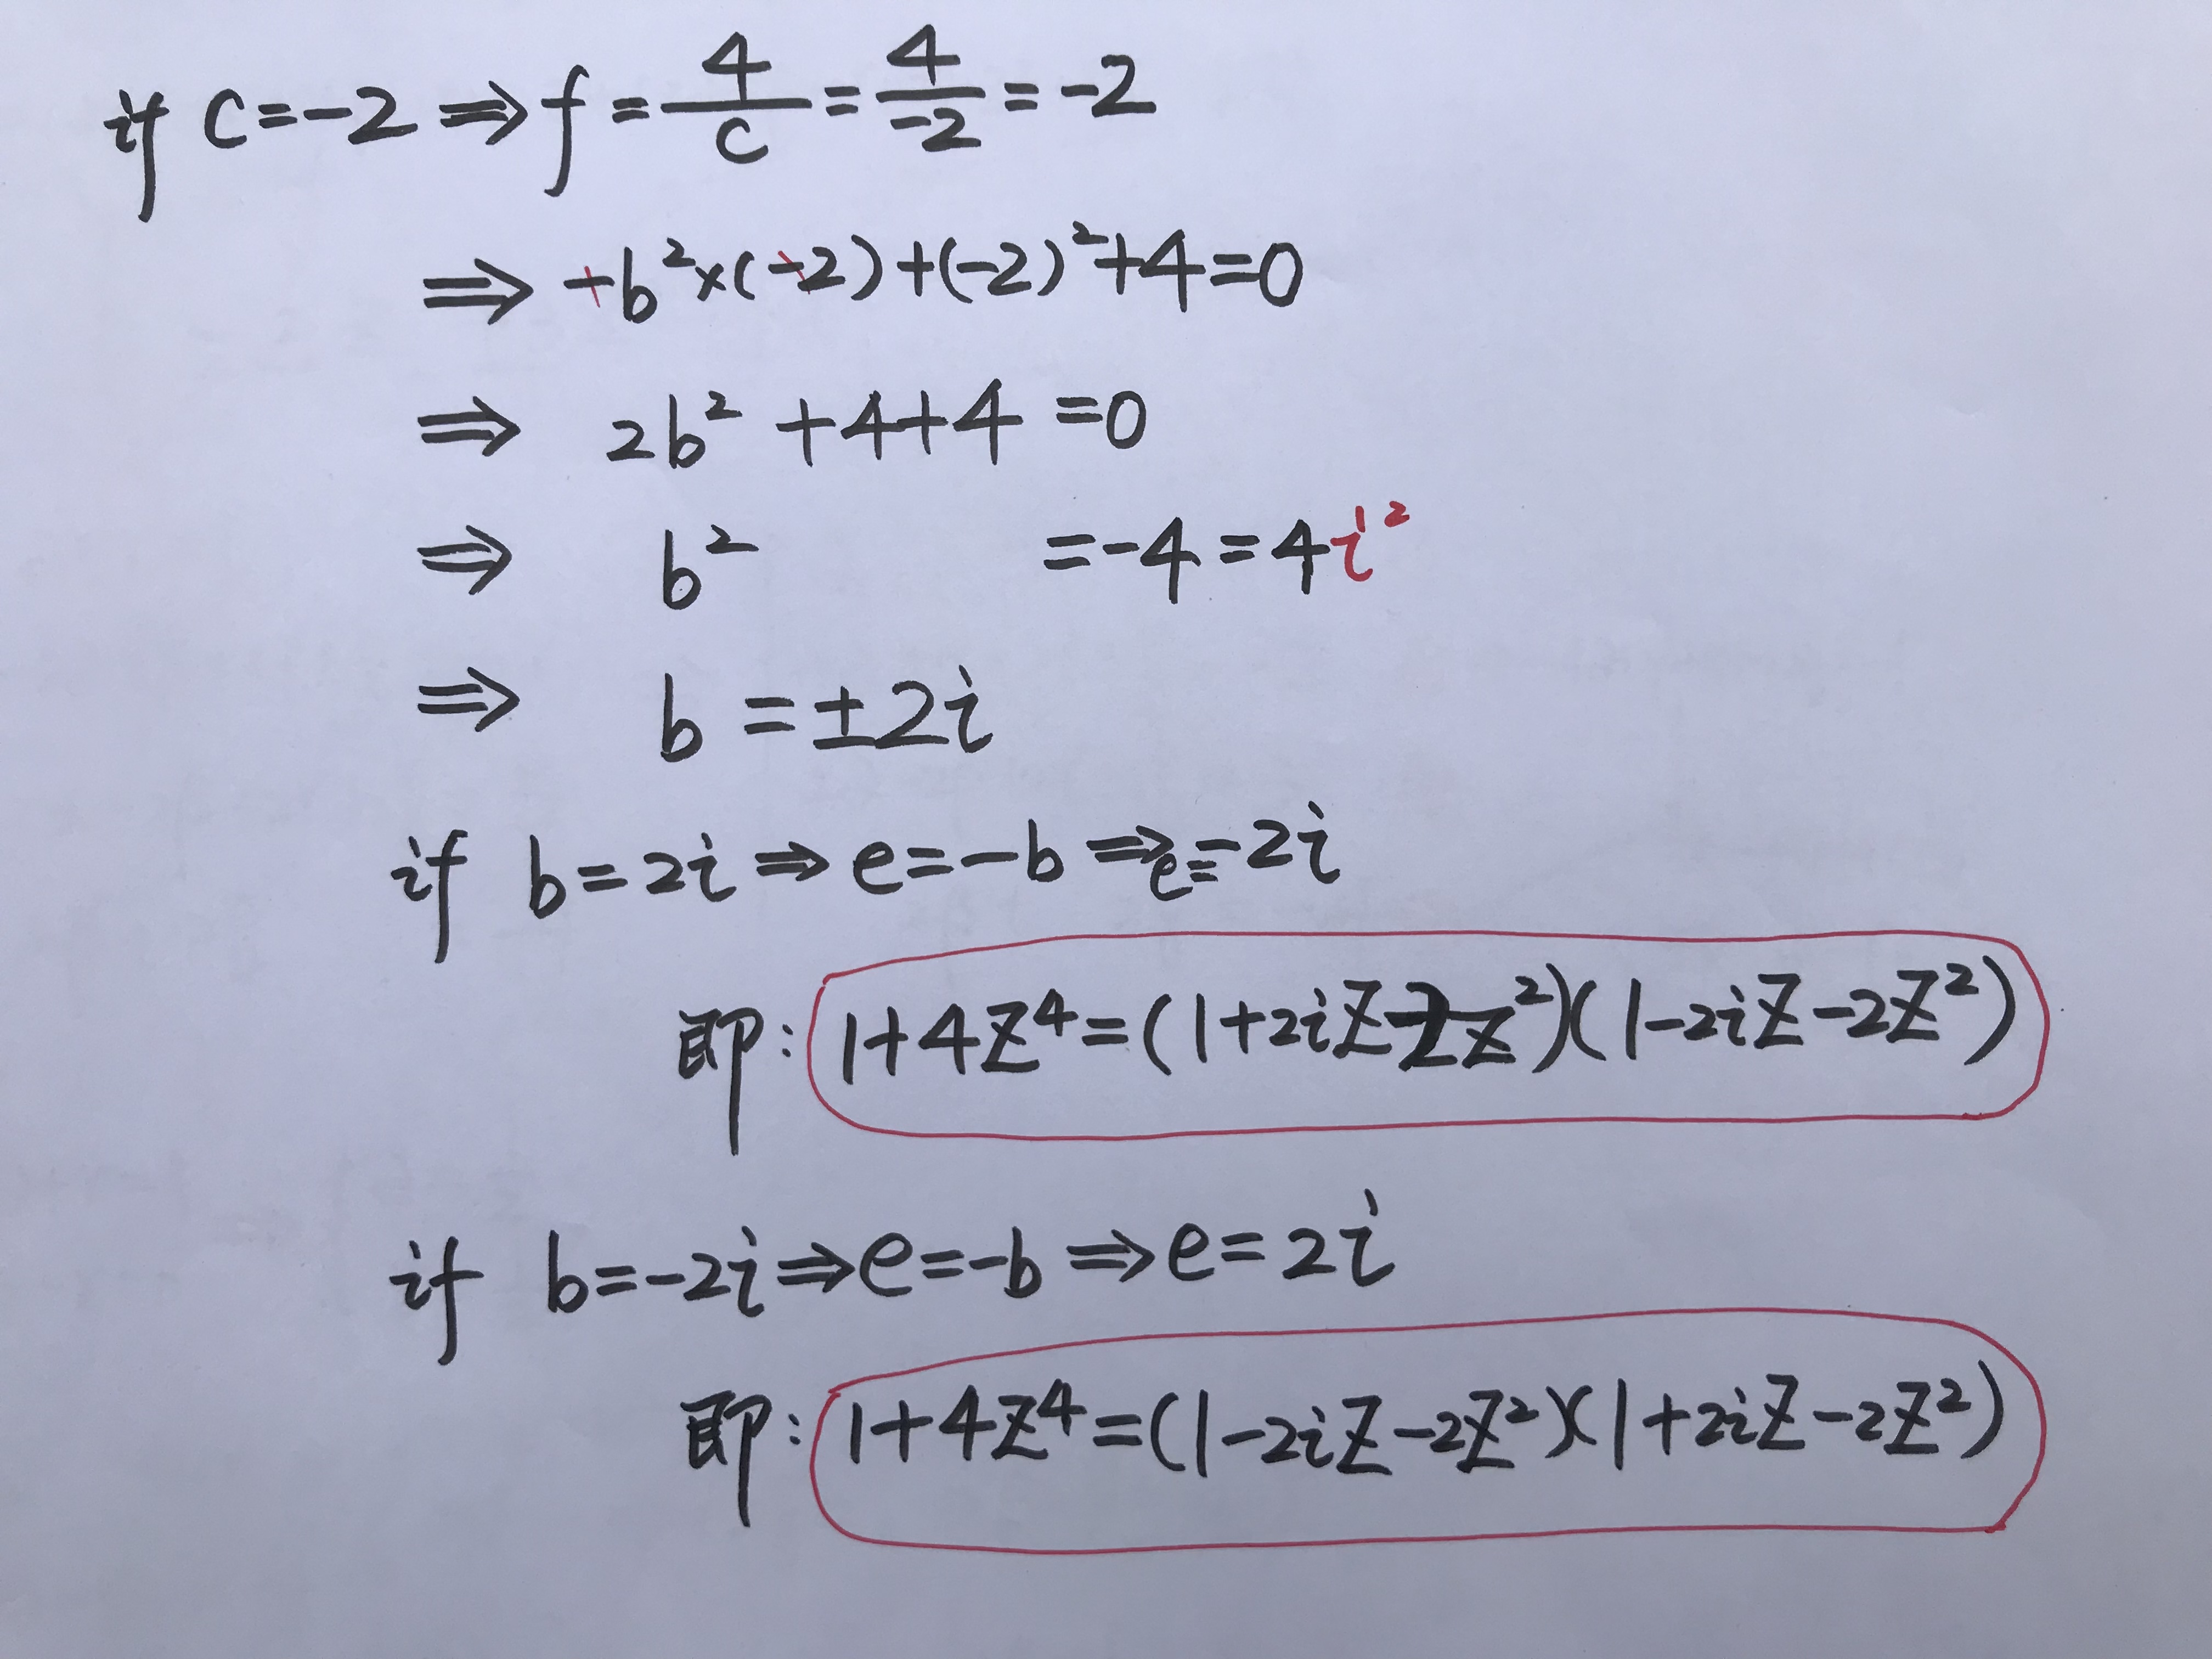 if c=-2 ⇒ f = 4/c = 4/-2 = -2
⇒ -b²×(-2)+(-2)²+4=0
⇒ 2b² +4+4 =0
⇒ b² =-4=4i²
⇒ b =±2i
if b=2i ⇒ e=-b ⇒ e=-2i
即: 1+4Z⁴=(1+2iZ-2Z²)(1-2iZ-2Z²)
if b=-2i ⇒ e=-b ⇒ e=2i
即: 1+4Z⁴=(1-2iZ-2Z²)(1+2iZ-2Z²)